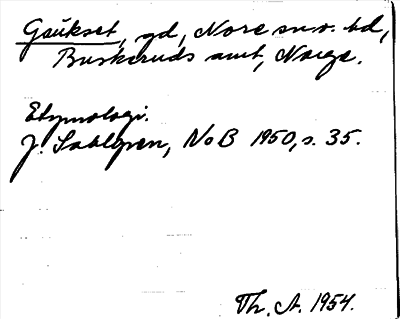 Gaukset, gd, Nore sn o. hd,
Buskeruds amt, Norge.
Etymologi.
J. Sahlgren, NoB 1950, s. 35.
Th. A. 1954.